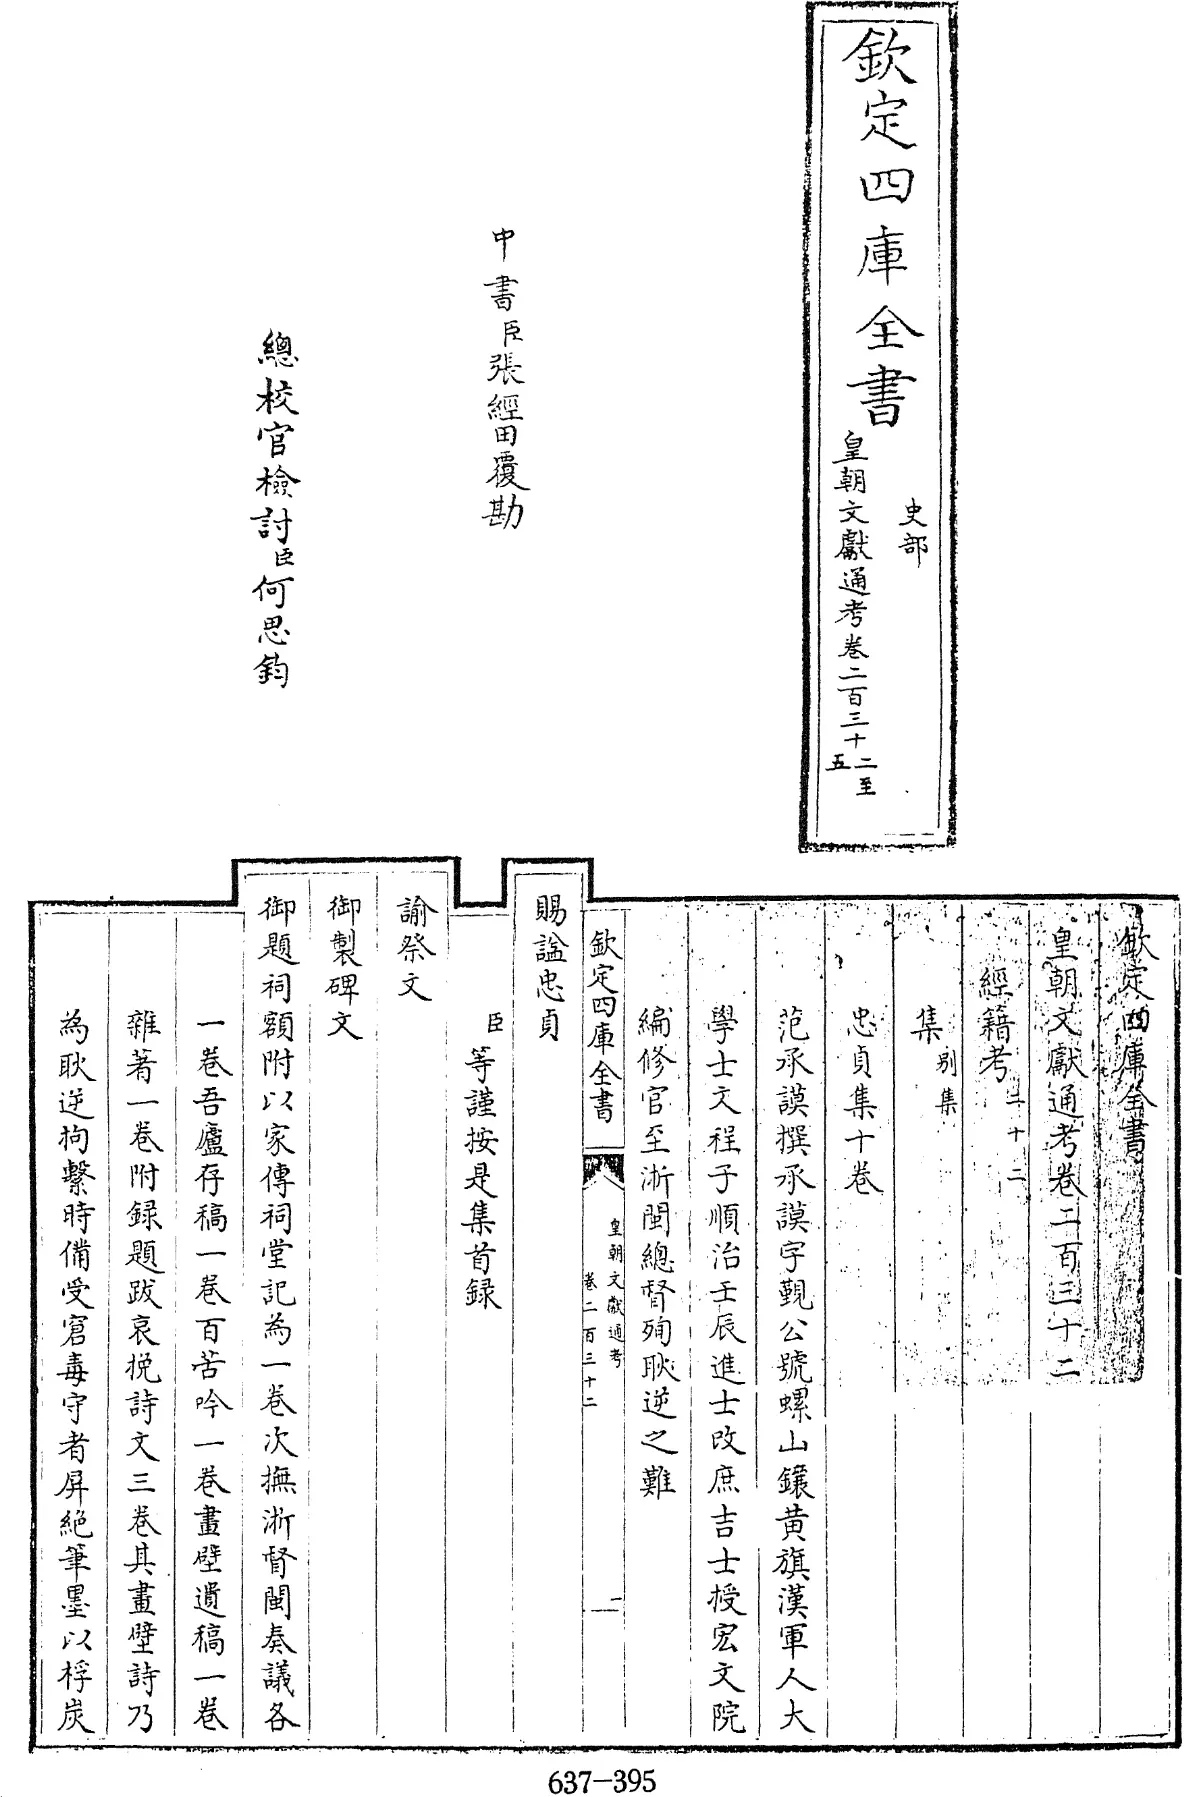 欽定四庫全書
史部
皇朝文獻通考卷二百三十二至五
中書臣張經田覆勘
總校官檢討臣何思鈞
欽定四庫全書
皇朝文獻通考卷二百三十二
經籍考二十二
集別集
忠貞集十卷
范承謨撰承謨字覲公號螺山鑲黄旗漢軍人大
學士文程子順治壬辰進士改庶吉士授宏文院
編修官至浙閩總督殉耿逆之難
欽定四庫全書
皇朝文獻通考
卷二百三十二
一
賜諡忠貞
臣等謹按是集首録
諭祭文
御製碑文
御題祠額附以家傳祠堂記為一卷次撫浙督閩奏議各
一卷吾廬存稿一卷百苦吟一卷畫壁遺稿一卷
雜著一卷附録題跋哀挽詩文三卷其畫壁詩乃
為耿逆拘繫時備受窘毒守者屏絶筆墨以桴炭
637-395